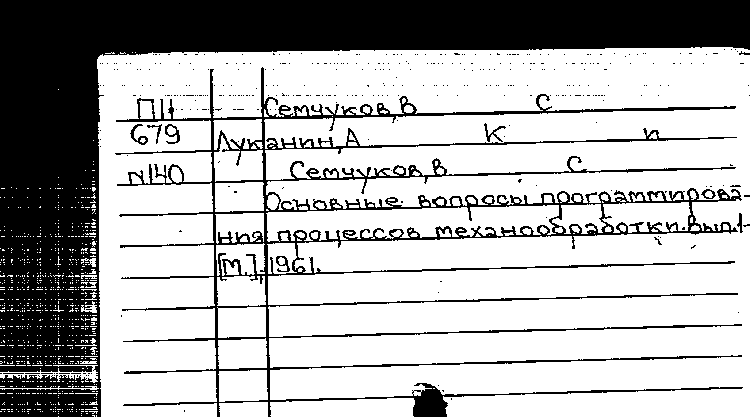 П11 Семчуков, В С
679 Луканин, А К и
N140 Семчуков, В С
Основные вопросы программирова-
ния процессов механообработки. Вып. 1-
[М.], 1961.